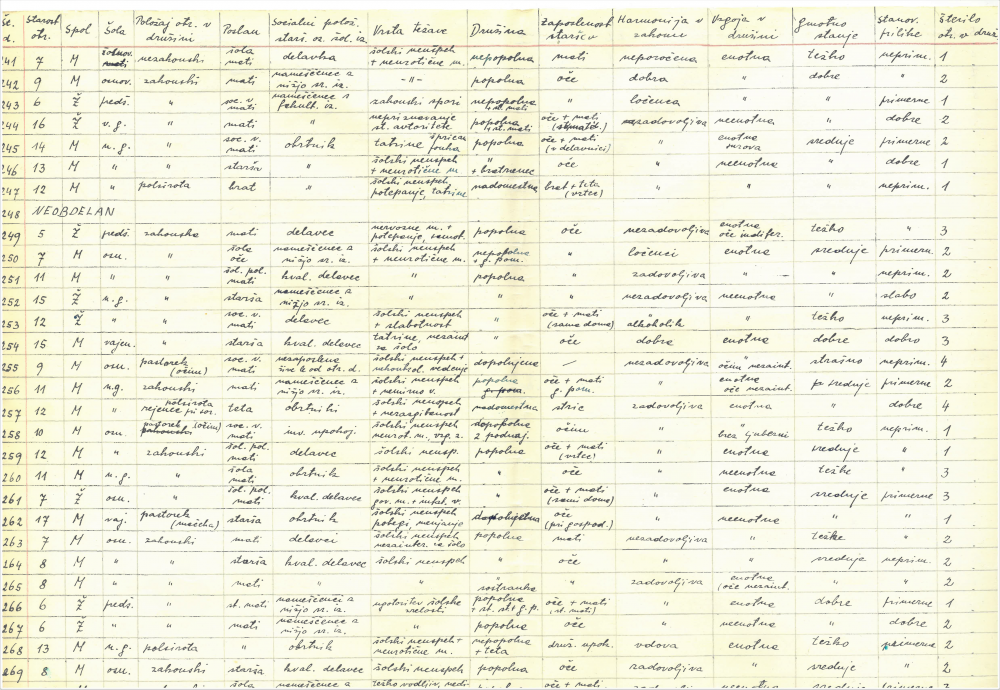 Št. d. Starost otr. Spol Šola Položaj otr. v družini Poslan Socialni polož. starš. oz. šol. iz. Vrsta težave Družina Zaposlenost staršev Harmonija v zakonu Vzgoja v družini gmotno stanje stanov. prilike Število otr. v druž.
241 7 M šolnov. nezakonski šola mati delavka šolski neuspeh + neurotične m. nepopolna mati neporočena enotna težko neprim. 1
242 9 M osnov. zakonski mati nameščenec z nižjo sr. iz. -"- popolna oče dobra " dobre " 2
243 6 Ž predš. " soc. v. mati nameščenec s fakult. iz. zakonski spori nepopolna + st. mati " ločenca " " primerne 1
244 16 Ž v.g. " mati " nepriznavanje st. avtoritete popolna + st. mati oče + mati nezadovoljiva neenotna " dobre 2
245 14 M n.g. " soc. v. mati obrtnik tatvine popolna oče + mati (v delavnici) " enotna surova srednje primerne 2
246 13 M " " starša " šolski neuspeh + neurotične m. " + bratranec oče " neenotna " dobre 1
247 12 M " polsirota brat " šolski neuspeh, potepanje, tatvine nadomestna brat + teta (vrtec) " " " neprim. 1
248 NEOBDELAN
249 5 Ž predš. zakonska mati delavec nervozne m. + potepanje, samot. popolna oče nezadovoljiva enotna oče indifer. težko " 3
250 7 M osn. " šola oče nameščenec z nižjo sr. iz. šolski neuspeh + neurotične m. nepopolna + g. pom. " ločenci enotna srednje primern. 2
251 11 M " " šol. pol. mati kval. delavec " popolna " zadovoljiva " - " neprim. 2
252 15 Ž n.g. " starša nameščenec z nižjo sr. iz. " " " nezadovoljiva neenotna " slabo 2
253 12 Ž " " soc. v. mati delavec šolski neuspeh + slabotnost " oče + mati (sama doma) " alkoholik " težko neprim. 3
254 15 M vajen. " starša kval. delavec tatvine, nezaint. za šolo " oče dobra enotna dobre dobro 3
255 9 M osn. pastorek (očim) soc. v. mati nezaposlena žive le od otr. d. šolski neuspeh + nekontrol. vedenje dopolnjena – nezadovoljiva očim nezaint. strašno neprim. 4
256 11 M n.g. zakonski mati nameščenec z nižjo sr. iz. šolski neuspeh + nemirno v. popolna g. pom. oče + mati g. pom. " enotna oče nezaint. srednje primerne 2
257 12 M " polsirota rejenec teta obrtniki šolski neuspeh + nerazgibanost nadomestna stric zadovoljiva enotna " dobre 4
258 10 M osn. pastorek (očim) soc. v. mati inv. upokoj. šolski neuspeh neurot. m., vzg. z. dopopolna 2 podnaj. očim " " brez ljubezni težko neprim. 1
259 12 M " zakonski šol. pol. mati delavec šolski neusp. popolna oče + mati (vrtec) " enotna srednje " 1
260 11 M n.g. " šola mati obrtnik šolski neuspeh + neurotične m. " oče " neenotna težke " 3
261 7 Ž osn. " šol. pol. mati kval. delavec šolski neuspeh " oče + mati (sami doma) " enotna srednje primerne 3
262 17 M vaj. pastorek (mačeha) starša obrtnik šolski neuspeh pobegi, menjanje dopolnjena oče (pri gospod.) " neenotna " " 1
263 7 M osn. zakonski mati delavci šolski neuspeh nezainter. za šolo popolna mati nezadovoljiva " težke " 2
264 8 M " " starša kval. delavec šolski neuspeh " oče " " srednje neprim. 2
265 8 M " " mati " " " sostranka " zadovoljiva enotna (oče nezaint. " " 2
266 6 Ž predš. " st. mati nameščenci z nižjo sr. iz. ugotovitev šolske zrelosti popolna + st. st + g. p. oče + mati (st. mati) " enotna dobre primerne 1
267 6 Ž " " mati nameščenec z nižjo sr. iz. " popolna oče " " " dobre 2
268 13 M n.g. polsirota " obrtnik šolski neuspeh + neurotične m. nepopolna + teta druž. upok. vdova enotna težko primerne 2
269 8 M osn. zakonski starša kval. delavec šolski neuspeh popolna oče zadovoljiva " srednje " 2